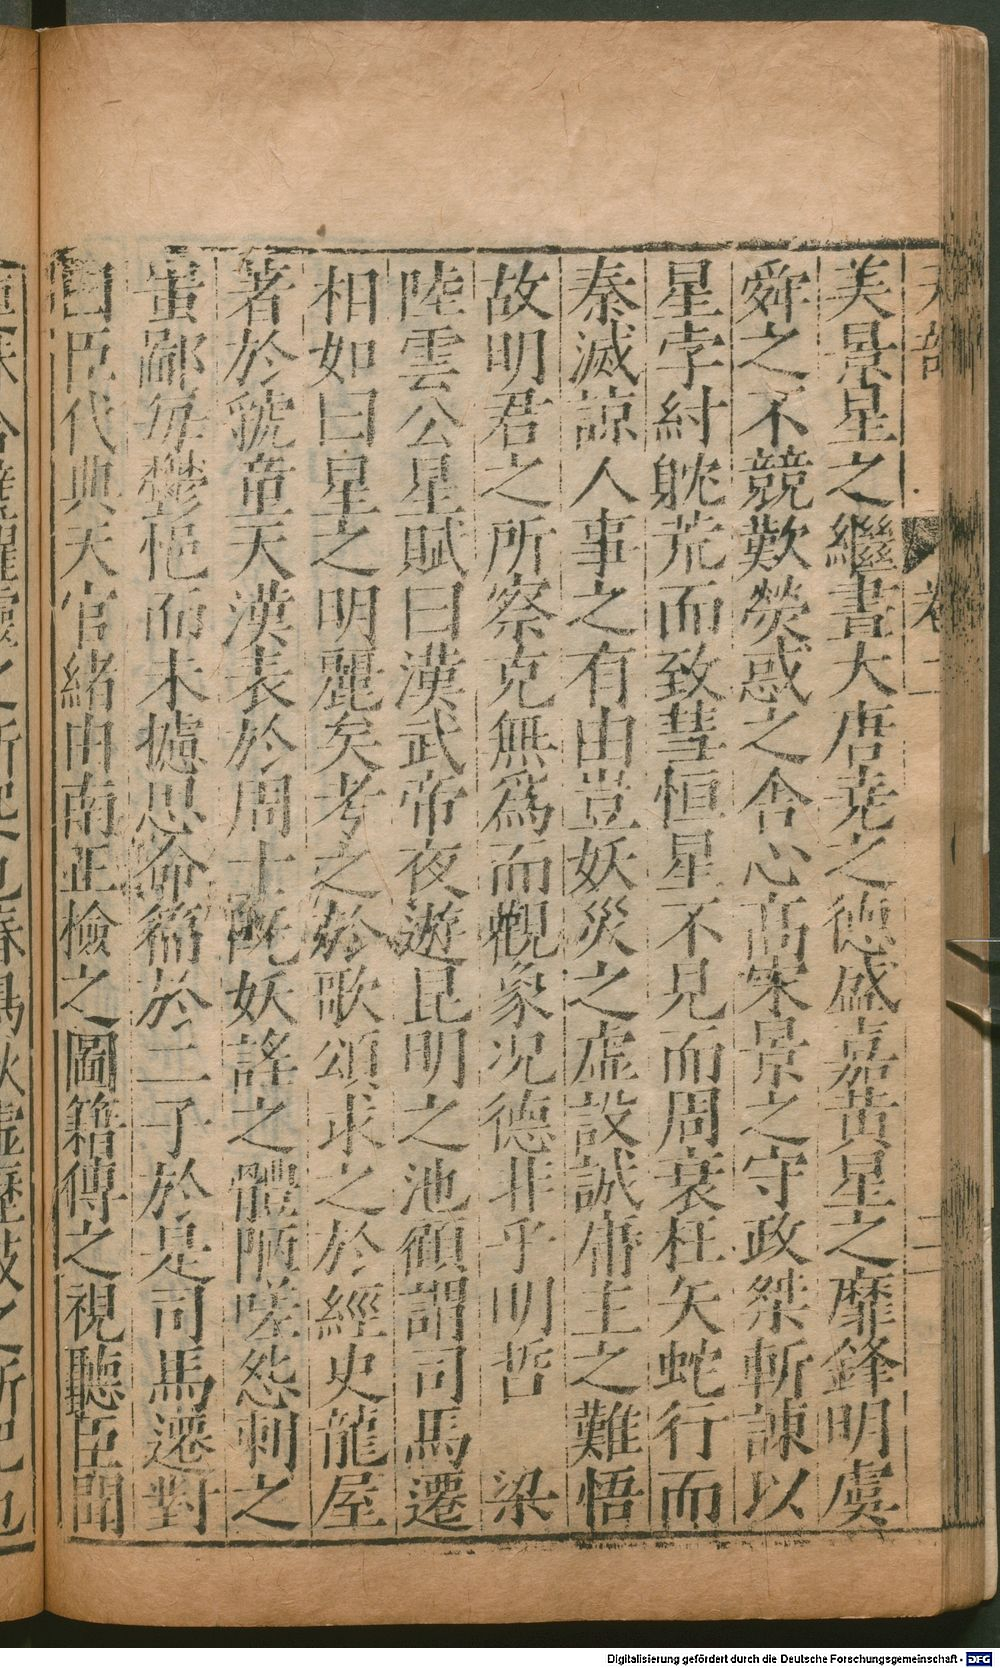 天部
卷二
二
美景星之繼晝大唐堯之德盛嘉黃星之靡鋒明虞
舜之不競歎熒惑之含心高宋景之守政桀斬諫以
星孛紂躭荒而致彗恒星不見而周衰枉矢蛇行而
秦滅諒人事之有由豈妖災之虛設誠庸主之難悟
故明君之所察克無爲而觀象况德非乎明哲 梁
陸雲公星賦曰漢武帝夜遊昆明之池顧謂司馬遷
相如曰星之明麗矣考之於歌頌求之於經史龍屋
著於虢童天漢表於周士旣妖謠之體陋嗟怨刺之
蚩鄙每鬱悒而未攄思命篇於二子於是司馬遷對
曰臣代典天官緒由南正檢之圖籍傳之視聽臣聞
Digitalisierung gefördert durch die Deutsche Forschungsgemeinschaft - DFG